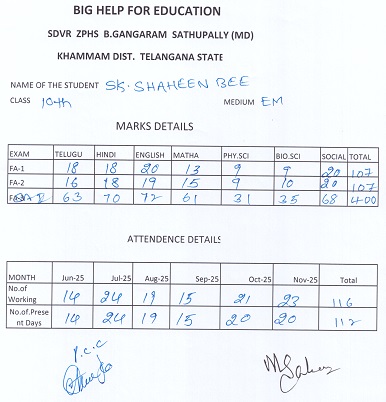 BIG HELP FOR EDUCATION
SDVR ZPHS B.GANGARAM SATHUPALLY (MD)
KHAMMAM DIST. TELANGANA STATE
NAME OF THE STUDENT SK. SHAHEEN BEE
CLASS 10th MEDIUM EM
MARKS DETAILS
EXAM TELUGU HINDI ENGLISH MATHA PHY.SCI BIO.SCI SOCIAL TOTAL
FA-1 18 18 20 13 9 9 20 107
FA-2 16 18 19 15 9 10 20 107
63 70 72 61 31 35 68 400
ATTENDENCE DETAILS
MONTH Jun-25 Jul-25 Aug-25 Sep-25 Oct-25 Nov-25 Total
No.of
Working 14 24 19 15 21 23 116
No.of.Prese
nt Days 14 24 19 15 20 20 112